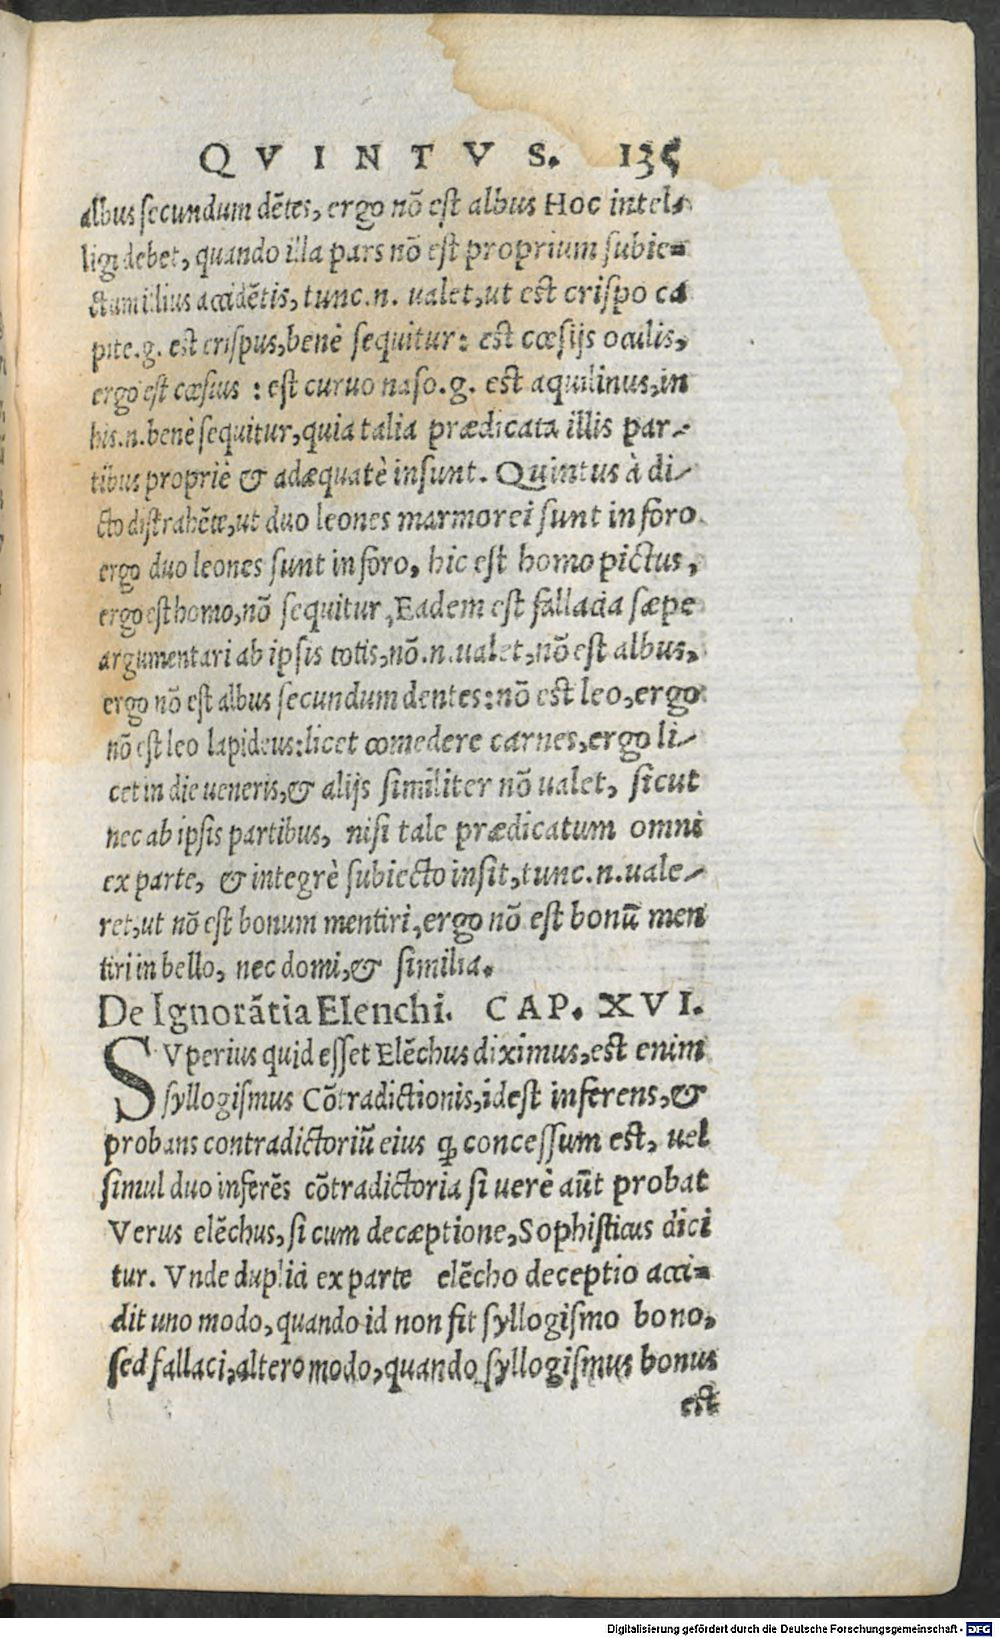 QVINTVS. 135
albus secundum dẽtes, ergo nõ est albus Hoc intel-
ligi debet, quando illa pars nõ est proprium subie=
ctum illius accidẽtis, tunc.n. ualet, ut est crispo ca
pite.g. est crispus, benè sequitur: est cœsijs oculis,
ergo est cœsius : est curuo naso.g. est aquilinus, in
his.n. benè sequitur, quia talia prædicata illis par-
tibus propriè & adæquatè insunt. Quintus à di-
cto distrahẽte, ut duo leones marmorei sunt in foro
ergo duo leones sunt in foro, hic est homo pictus,
ergo est homo, nõ sequitur, Eadem est fallacia sæpe
argumentari ab ipsis totis, nõ.n.ualet, nõ est albus,
ergo nõ est albus secundum dentes: nõ est leo, ergo
nõ est leo lapideus: licet comedere carnes, ergo li-
cet in die ueneris, & alijs similiter nõ ualet, sicut
nec ab ipsis partibus, nisi tale prædicatum omni
ex parte, & integrè subiecto insit, tunc.n.uale-
ret, ut nõ est bonum mentiri, ergo nõ est bonũ men
tiri in bello, nec domi, & similia.
De Ignorãtia Elenchi. CAP. XVI.
SVperius quid esset Elẽchus diximus, est enim
syllogismus Cõtradictionis, idest inferens, &
probans contradictoriũ eius ꝙ concessum est, uel
simul duo inferẽs cõtradictoria si uerè aũt probat
Verus elẽchus, si cum decæptione, Sophisticus dici
tur. Vnde duplici ex parte elẽcho deceptio acci=
dit uno modo, quando id non fit syllogismo bono,
sed fallaci, altero modo, quando syllogismus bonus
est
Digitalisierung gefördert durch die Deutsche Forschungsgemeinschaft - DFG